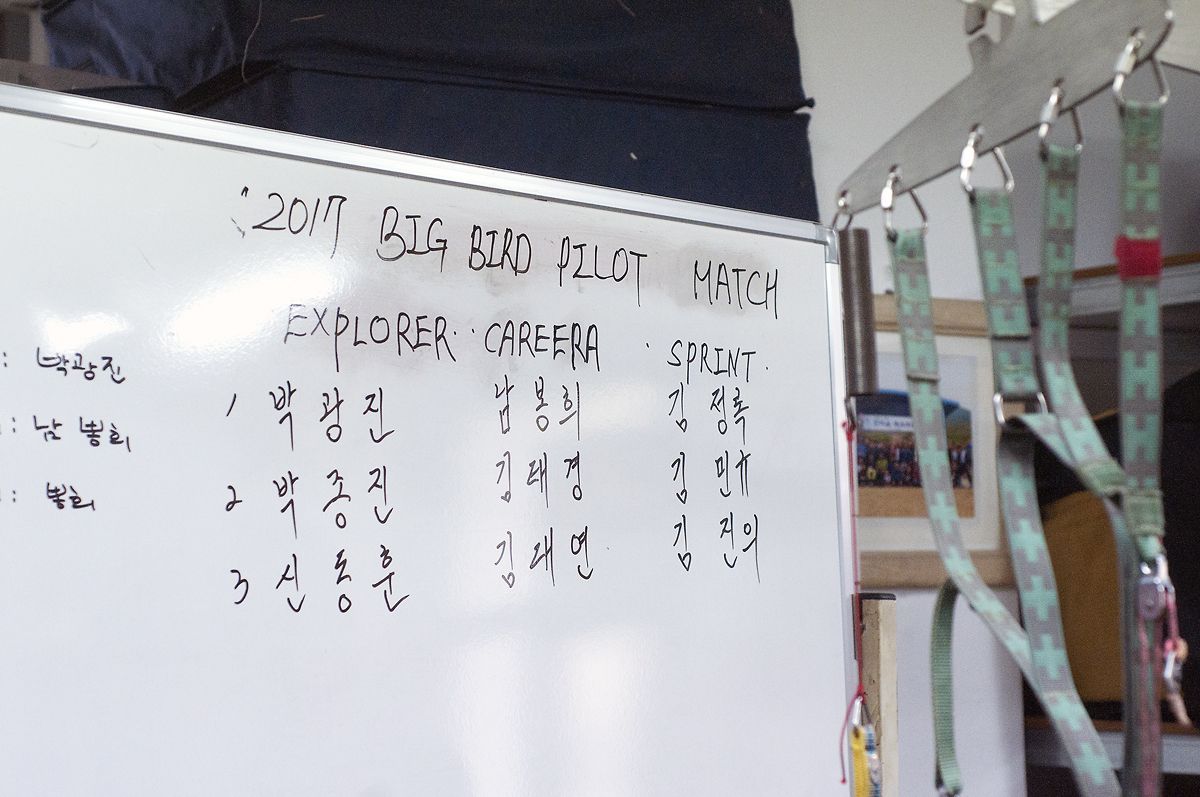 2017 BIG BIRD PILOT MATCH
EXPLORER. . CAREERA . SPRINT.
1 박광진 남봉희 김정록
2 박종진 김태경 김민규
3 신동훈 김대연 김진의
: 박광진
: 남봉희
: 봉희